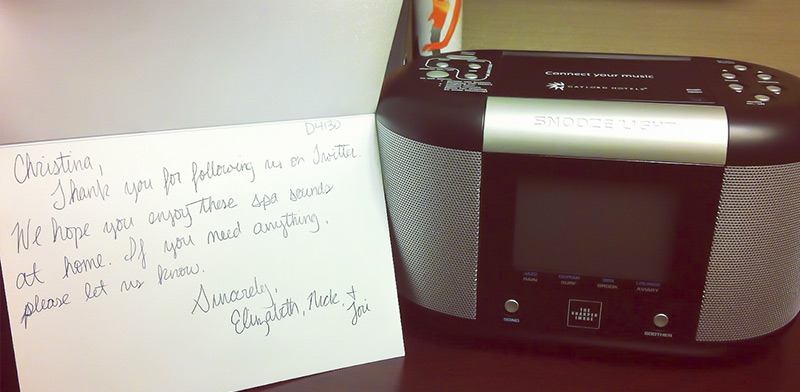 D4130
Christina,
Thank you for following us on Twitter.
We hope you enjoy these spa sounds
at home. If you need anything,
please let us know.
Sincerely,
Elizabeth, Nick, +
Lori
Connect your music
GAYLORD HOTELS
SNOOZE/LIGHT
RAIN SURF BROOK AVIARY
SOUND
THE
SHARPER
IMAGE
SOOTHER